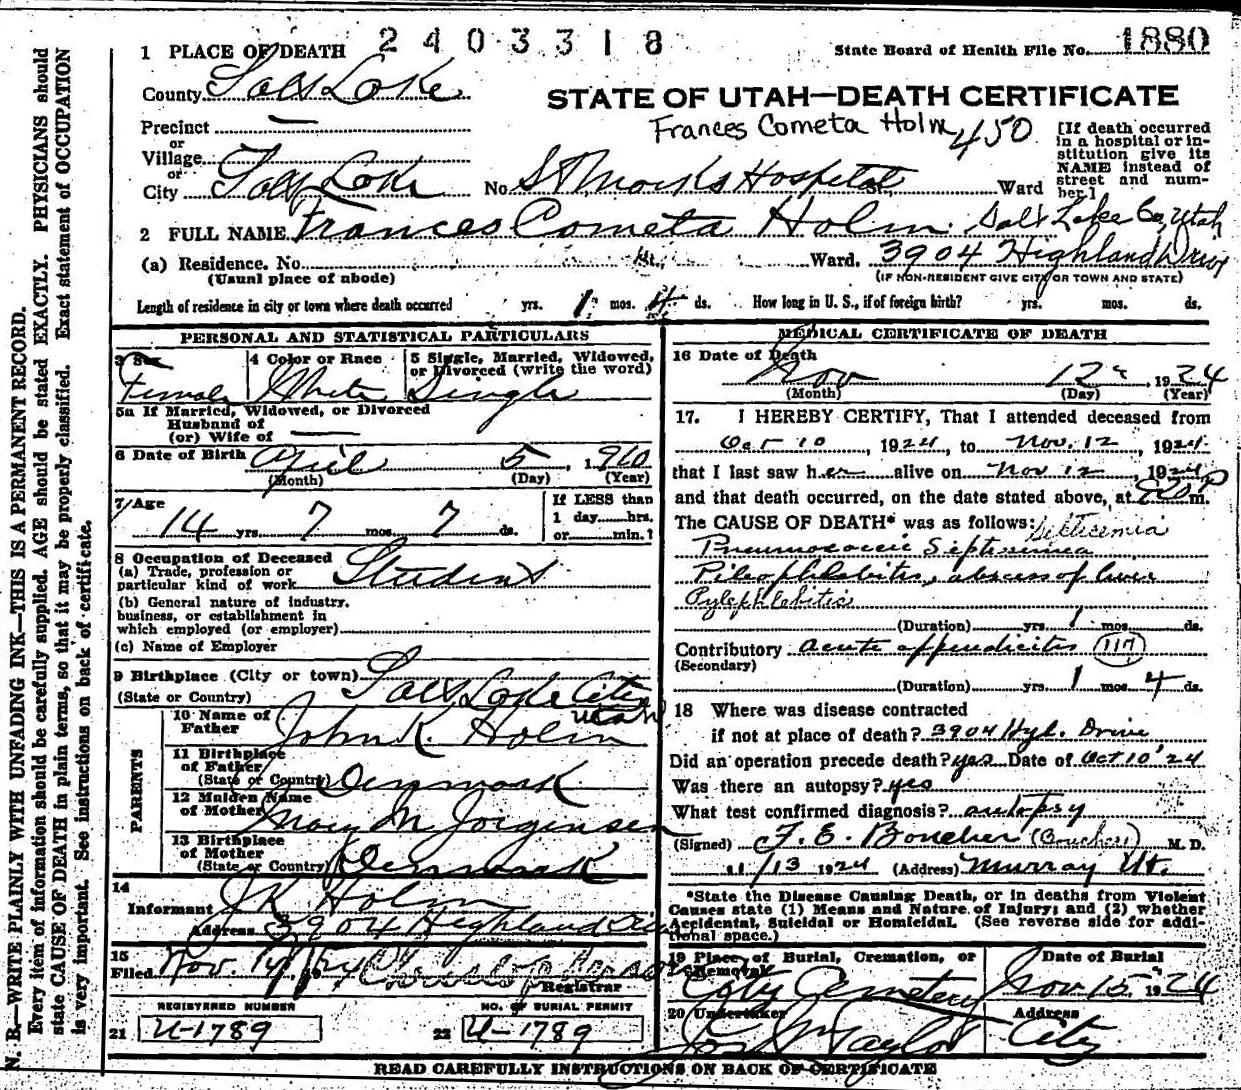 2403318
State Board of Health File No. 1880
1 PLACE OF DEATH
County Salt Lake
STATE OF UTAH—DEATH CERTIFICATE
Frances Cometa Holm 450
Precinct —
or
Village
or
City Salt Lake No. St Marks Hospital St., Ward
[If death occurred
in a hospital or in-
stitution give its
NAME instead of
street and num-
ber.]
2 FULL NAME Frances Cometa Holm Salt Lake Co, Utah
(a) Residence. No. St., Ward. 3904 Highland Drive
(Usual place of abode) (IF NON-RESIDENT GIVE CITY OR TOWN AND STATE)
Length of residence in city or town where death occurred yrs. 1 mos. 4 ds. How long in U. S., if of foreign birth? yrs. mos. ds.
PERSONAL AND STATISTICAL PARTICULARS
3 Sex Female
4 Color or Race White
5 Single, Married, Widowed,
or Divorced (write the word)
Single
5a If Married, Widowed, or Divorced
Husband of
(or) Wife of —
6 Date of Birth April 5, 1910
(Month) (Day) (Year)
7 Age 14 yrs. 7 mos. 7 ds.
If LESS than
1 day......hrs.
or......min.?
8 Occupation of Deceased
(a) Trade, profession or
particular kind of work Student
(b) General nature of industry,
business, or establishment in
which employed (or employer)
(c) Name of Employer
9 Birthplace (City or town) Salt Lake City
(State or Country) Utah
PARENTS
10 Name of
Father John K. Holm
11 Birthplace
of Father
(State or Country) Denmark
12 Maiden Name
of Mother Mary M Jorgensen
13 Birthplace
of Mother
(State or Country) Denmark
14
Informant J K Holm
Address 3904 Highland Drive
15
Filed Nov. 14, 19
Registrar
REGISTERED NUMBER NO. OF BURIAL PERMIT
21 U-1789 22 U-1789
MEDICAL CERTIFICATE OF DEATH
16 Date of Death
Nov 12, 1924
(Month) (Day) (Year)
17. I HEREBY CERTIFY, That I attended deceased from
Oct 10, 1924, to Nov. 12, 1924
that I last saw her alive on Nov 12, 1924
and that death occurred, on the date stated above, at m.
The CAUSE OF DEATH* was as follows: Septicemia
Pneumococcic Septicimea
Pileophlebitis, abscess of liver
Pylephlebitis
(Duration) yrs. 1 mos. ds.
Contributory acute appendicitis 117
(Secondary)
(Duration) yrs. 1 mos. 4 ds.
18 Where was disease contracted
if not at place of death? 3904 Hyl. Drive
Did an operation precede death? yes Date of Oct 10, '24
Was there an autopsy? yes
What test confirmed diagnosis? autopsy
(Signed) F. E. Boucher (Boucher) M. D.
11/13 1924 (Address) Murray Ut.
*State the Disease Causing Death, or in deaths from Violent
Causes state (1) Means and Nature of Injury; and (2) whether
Accidental, Suicidal or Homicidal. (See reverse side for addi-
tional space.)
19 Place of Burial, Cremation, or
Removal
City Cemetery
Date of Burial
Nov 15, 1924
20 Undertaker
Jos Wm Taylor
Address
City
READ CAREFULLY INSTRUCTIONS ON BACK OF CERTIFICATE
N. B.—WRITE PLAINLY WITH UNFADING INK—THIS IS A PERMANENT RECORD.
Every item of information should be carefully supplied. AGE should be stated EXACTLY. PHYSICIANS should
state CAUSE OF DEATH in plain terms, so that it may be properly classified. Exact statement of OCCUPATION
is very important. See instructions on back of certificate.